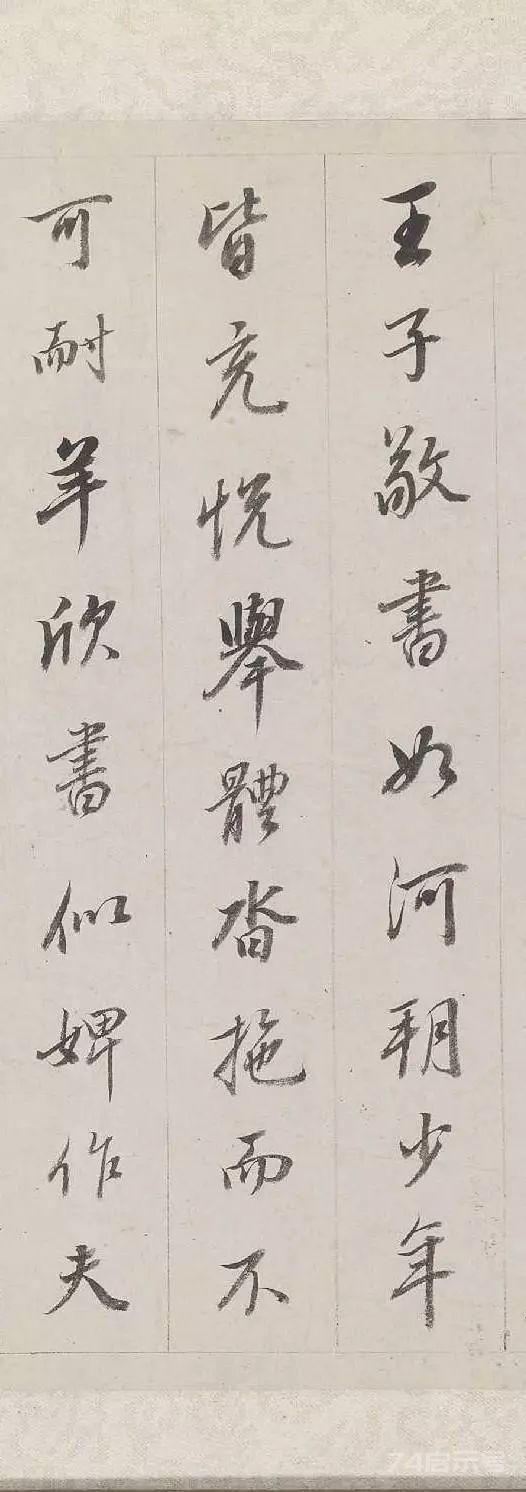 王子敬書如河朔少年
皆充悅舉體沓拖而不
可耐羊欣書似婢作夫
74启示号